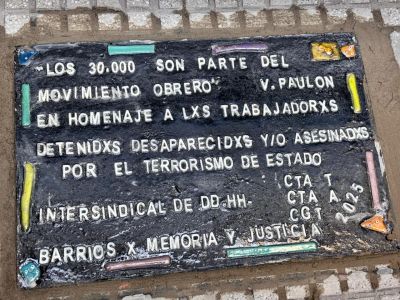 "LOS 30.000 SON PARTE DEL
MOVIMIENTO OBRERO" V. PAULON
EN HOMENAJE A LXS TRABAJADORXS
DETENIDXS DESAPARECIDXS Y/O ASESINADXS
POR EL TERRORISMO DE ESTADO
CTA T
INTERSINDICAL DE DD-HH- CTA A
CGT 2025
BARRIOS X MEMORIA Y JUSTICIA